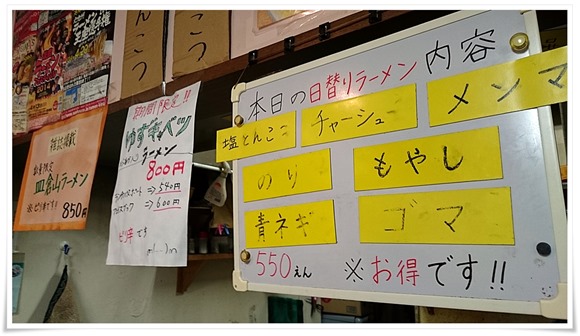 とんこつ
こつ
雑誌掲載
数量限定
皿倉山ラーメン
850円
期間限定!!
ゆずキャベツ
ラーメン
800円
⇒540円
⇒600円
ピリ辛です
本日の日替りラーメン内容
塩とんこつ
チャーシュー
メンマ
のり
もやし
青ネギ
ゴマ
550えん
※お得です!!